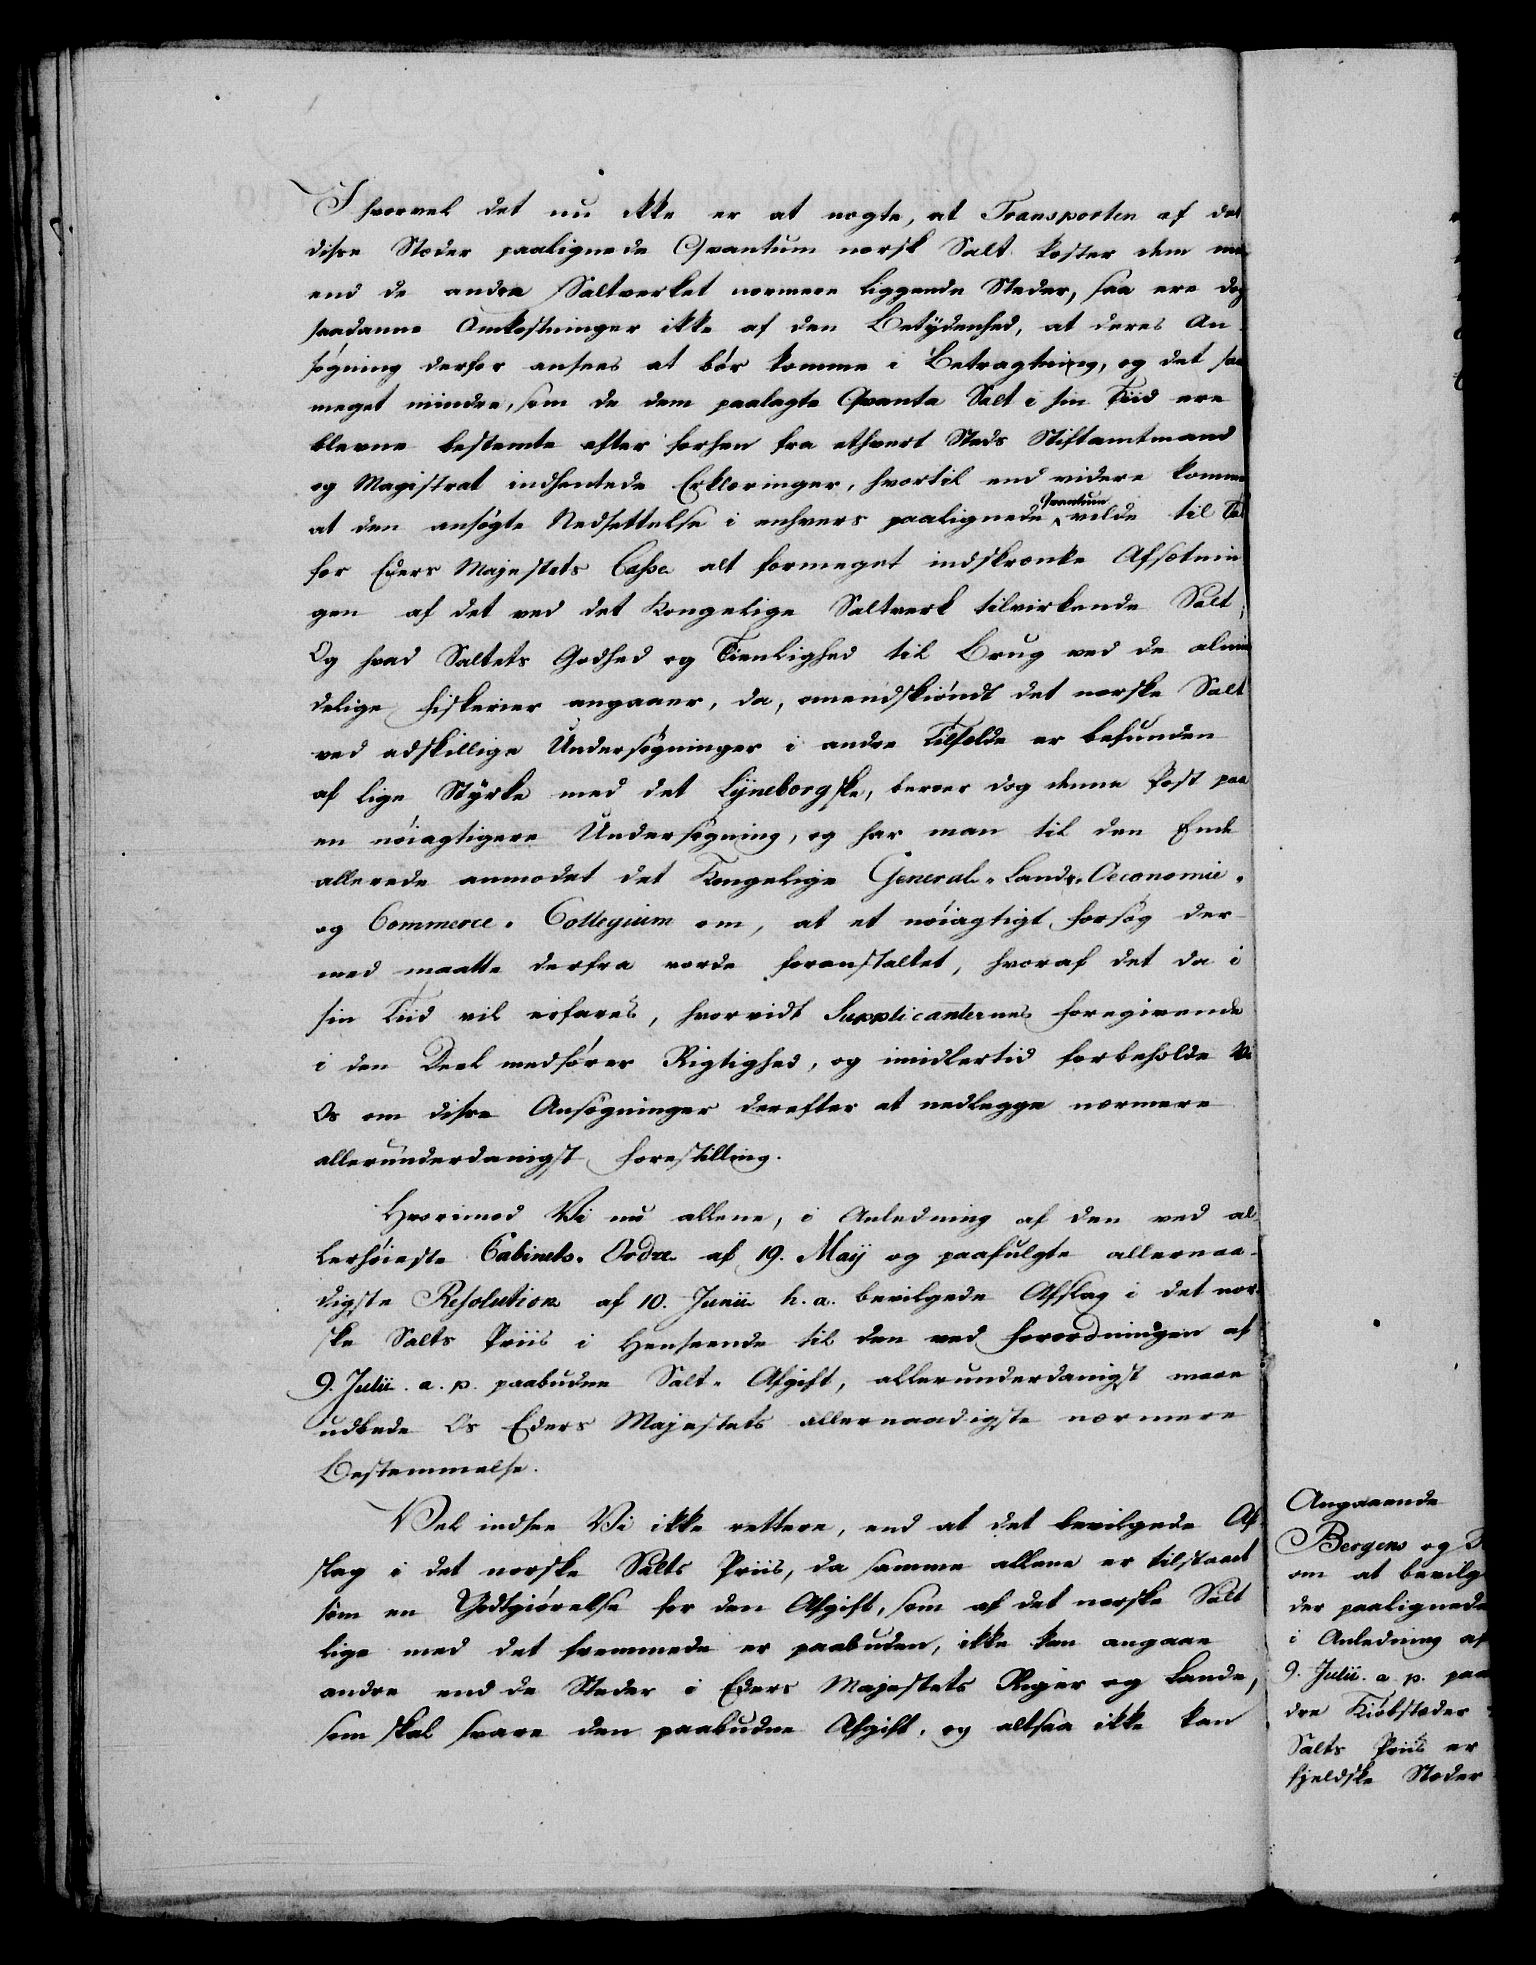 Ihvorvel det nu ikke er at nægte, at Transporten af det
disse Stæder paalignede Qvantum norsk Salt koster dem me
end de andre Saltverket nærmere liggende Stæder, saa ere dog
saadanne Omkostninger ikke af den Betÿdenhed, at deres An-
søgning derfor ansees at bør komme i Betragtning, og det saa
meget mindre, som de dem paalagte Qvanta Salt i sin Tiid ere
blevne bestemte efter forhen fra ethvert Steds Stiftamtmand
og Magistrat indhentede Erklæringer, hvortil end videre komme
at den ansøgte Nedsettelse i enhvers paalignede Qvantum vilde til Ta
for Eders Majestets Casse alt formeget indskrænke Afsætnin
gen af det ved det Kongelige Saltverk tilvirkende Salt;
Og hvad Saltets Godhed og Tienlighed til Brug ved de almin
delige Fiskerier angaaer, da, omendskiøndt det norske Salt
ved adskillige Undersøgninger i andre Tilfælde er befunden
af lige Stÿrke med det Lÿneborgske, beroer dog denne Post paa
en nøiagtigere Undersøgning, og har man til den Ende
allerede anmodet det Kongelige General-Lands-Oeconomie-
og Commerce-Collegium om, at et nøiagtigt Forsøg der-
med maatte derfra vorde foranstaltet, hvoraf det da i
sin Tiid vil erfares, hvorvidt Supplicanternes Foregivende
i den Deel medfører Rigtighed, og imidlertid forbeholde Vi
Os om disse Ansøgninger derefter at nedlegge nærmere
allerunderdanigst Forestilling.
Hvorimod Vi nu allene, i Anledning af den ved al-
lerhøieste Cabinets-Ordre af 19. Maÿ og paafulgte allernaa-
digste Resolution af 10. Junii h. a. bevilgede Afslag i det nor-
ske Salts Priis i Henseende til den ved Forordningen af
9. Julii a. p. paabudne Salt-Afgift, allerunderdanigst maae
udbede Os Eders Majestets allernaadigste nærmere
Bestemmelse.
Vel indsee Vi ikke rettere, end at det bevilgede Af-
slag i det norske Salts Priis, da samme allene er tilstaaet
som en Godtgiørelse for den Afgift, som af det norske Salt
lige med det fremmede er paabuden, ikke kan angaae
andre end de Stæder i Eders Majestets Riger og Lande,
som skal svare den paabudne Afgift, og altsaa ikke kan
Angaaende
Bergens og
om at bevilg
der paalignede
i Anledning af
9. Julii a. p. paa
dre Kiøbstæder
Salts Priis er
fieldske Stæder